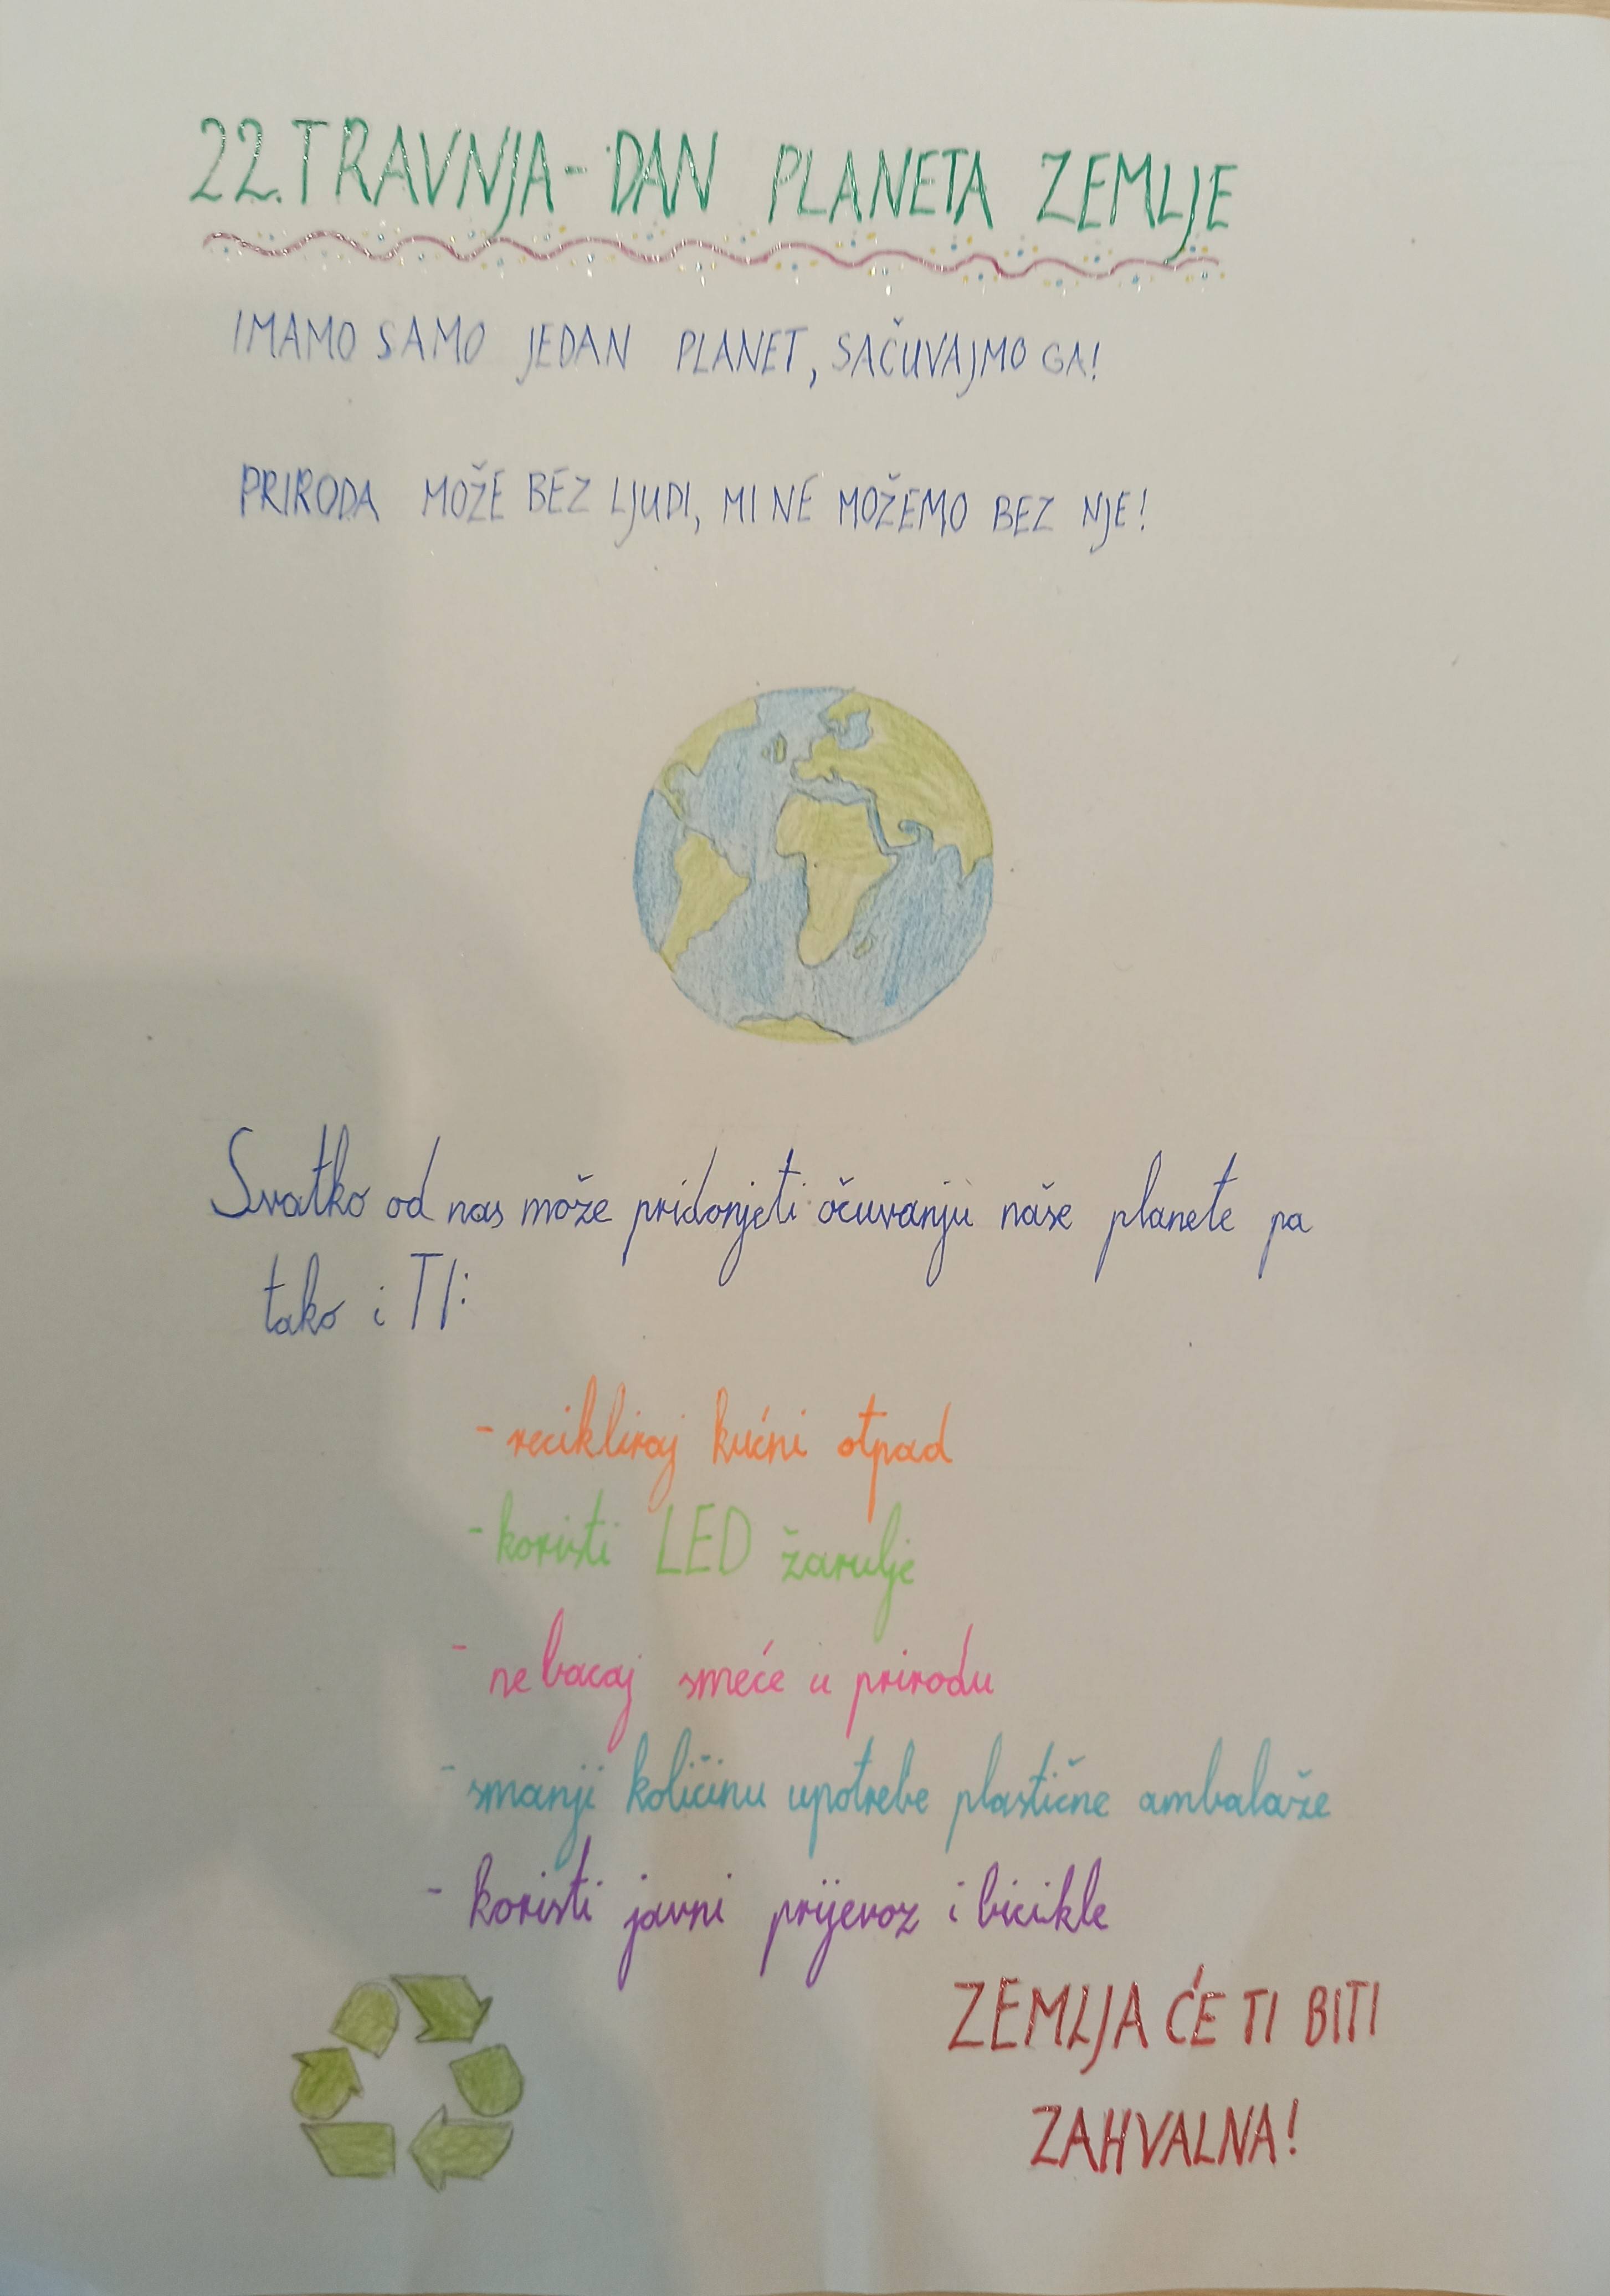 22. TRAVNJA - DAN PLANETA ZEMLJE
IMAMO SAMO JEDAN PLANET, SAČUVAJMO GA!
PRIRODA MOŽE BEZ LJUDI, MI NE MOŽEMO BEZ NJE!
Svatko od nas može pridonjeti očuvanju naše planete pa
tako i TI:
- recikliraj kućni otpad
- koristi LED žarulje
- ne bacaj smeće u prirodu
- smanji količinu upotrebe plastične ambalaže
- koristi javni prijevoz i bicikle
ZEMLJA ĆE TI BITI
ZAHVALNA!